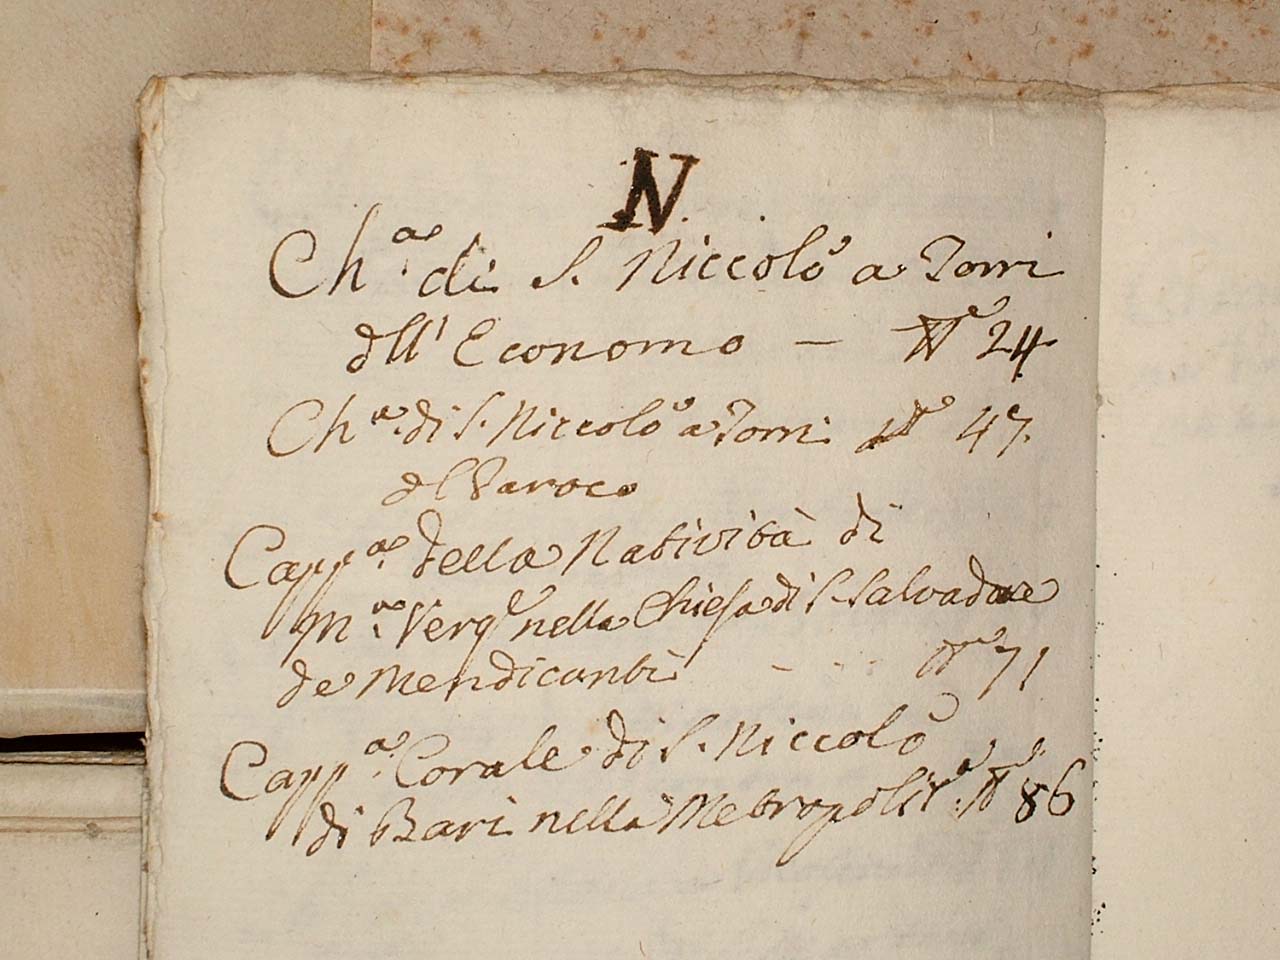 N.
Ch.a di S. Niccolò a Torri
dll' Economo — No 24
Ch.a di S. Niccolò a Torri No 47.
dl Paroco
Capp.a della Natività di
M.a Verg.e nella Chiesa di S. Salvadore
de Mendicanti - - - No 71
Capp.a Corale di S. Niccolò
di Bari nella Metropolit.a No 86